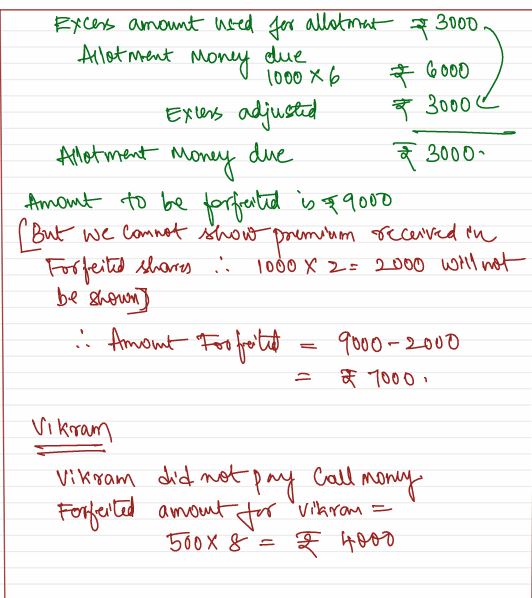 Excess amount used for allotment ₹ 3000
Allotment Money due
1000 X 6 ₹ 6000
Excess adjusted ₹ 3000
Allotment Money due ₹ 3000.
Amount to be forfeited is ₹ 9000
[But we cannot show premium received in
Forfeited shares ∴ 1000 X 2 = 2000 will not
be shown]
∴ Amount Forfeited = 9000 - 2000
= ₹ 7000.
Vikram
Vikram did not pay Call money.
Forfeited amount for Vikram =
500 X 8 = ₹ 4000